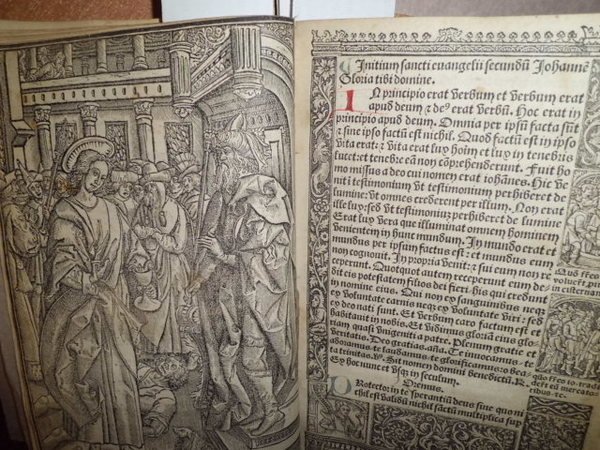 Initium sancti evangelii secundū Johannē
Gloria tibi domine.
IN principio erat verbum et verbum erat
apud deum & de9 erat verbū. Hoc erat in
principio apud deum. Omnia per ipsū facta sūt
& sine ipso factū est nichil. Quod factū est in ipso
vita erat: & vita erat lux hoīm et lux in tenebris
lucet: et tenebre eā non cōprehenderunt. Fuit ho
mo missus a deo cui nomen erat iohānes. Hic ve
nit ī testimonium vt testimonium perhiberet de
lumine: vt omnes crederent per illum. Non erat
ille lux: sed vt testimoniū perhiberet de lumine
Erat lux vera que illuminat omnem hominem
venientem in hunc mundum. In mundo erat et
mundus per ipsum factus est: et mundus eum
non cognouit. In propria venit: & sui eum non re
ceperunt. Quotquot autem receperunt eum de-
dit eis potestatem filios dei fieri. his qui credunt
in nomine eius. Qui non ex sanguinibus neqz
ex voluntate carnis neqz ex voluntate viri: sed
ex deo nati sunt. Et verbum caro factum est et
habitauit in nobis. Et vidimus gloriā eius glo-
riam quasi vnigeniti a patre. Plenum gratie et
veritatis. Deo gratias. Te inuocamus. te
adoramus. te laudamus. te glorificamus o bea-
ta trinitas. Sit nomen domini benedictū.
Ex hoc nunc et vsqz in seculum. Oremus.
PRotector in te sperantiū deus sine quo ni
chil est validū nichil sanctū multiplica sup